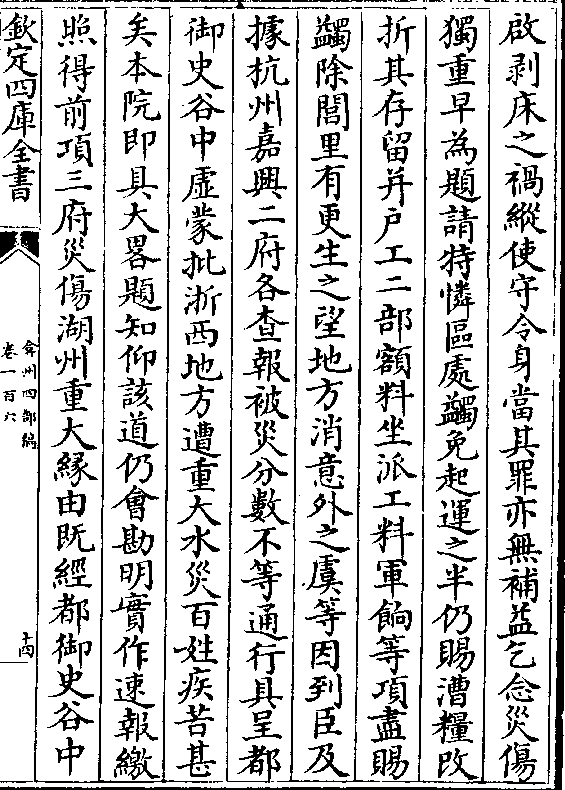 啟剥床之禍縱使守令身當其罪亦無補益乞念災傷
獨重早為題請特憐區處蠲免起運之半仍賜漕糧改
折其存留并戶工二部額料坐派工料軍餉等項盡賜
蠲除閭里有更生之望地方消意外之虞等因到臣及
據杭州嘉興二府各查報被災分數不等通行具呈都
御史谷中虛蒙批浙西地方遭重大水災百姓疾苦甚
矣本院即具大畧題知仰該道仍會勘明實作速報繳
照得前項三府災傷湖州重大緣由既經都御史谷中
欽定四庫全書
弇州四部稿
卷一百六
十四